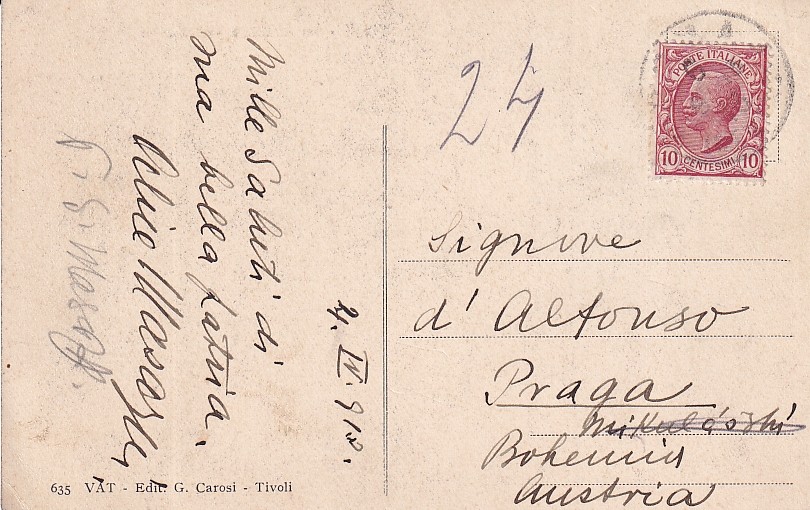 Mille Saluti di
ma bella patria.
Alice Masaryk,
T. G. Masaryk.
4. IV. 912.
24
POSTE ITALIANE
10 CENTESIMI 10
Signore
d' Alfonso
Praga
Mikulášská
Bohemia
Austria
635 VAT - Edit. G. Carosi - Tivoli